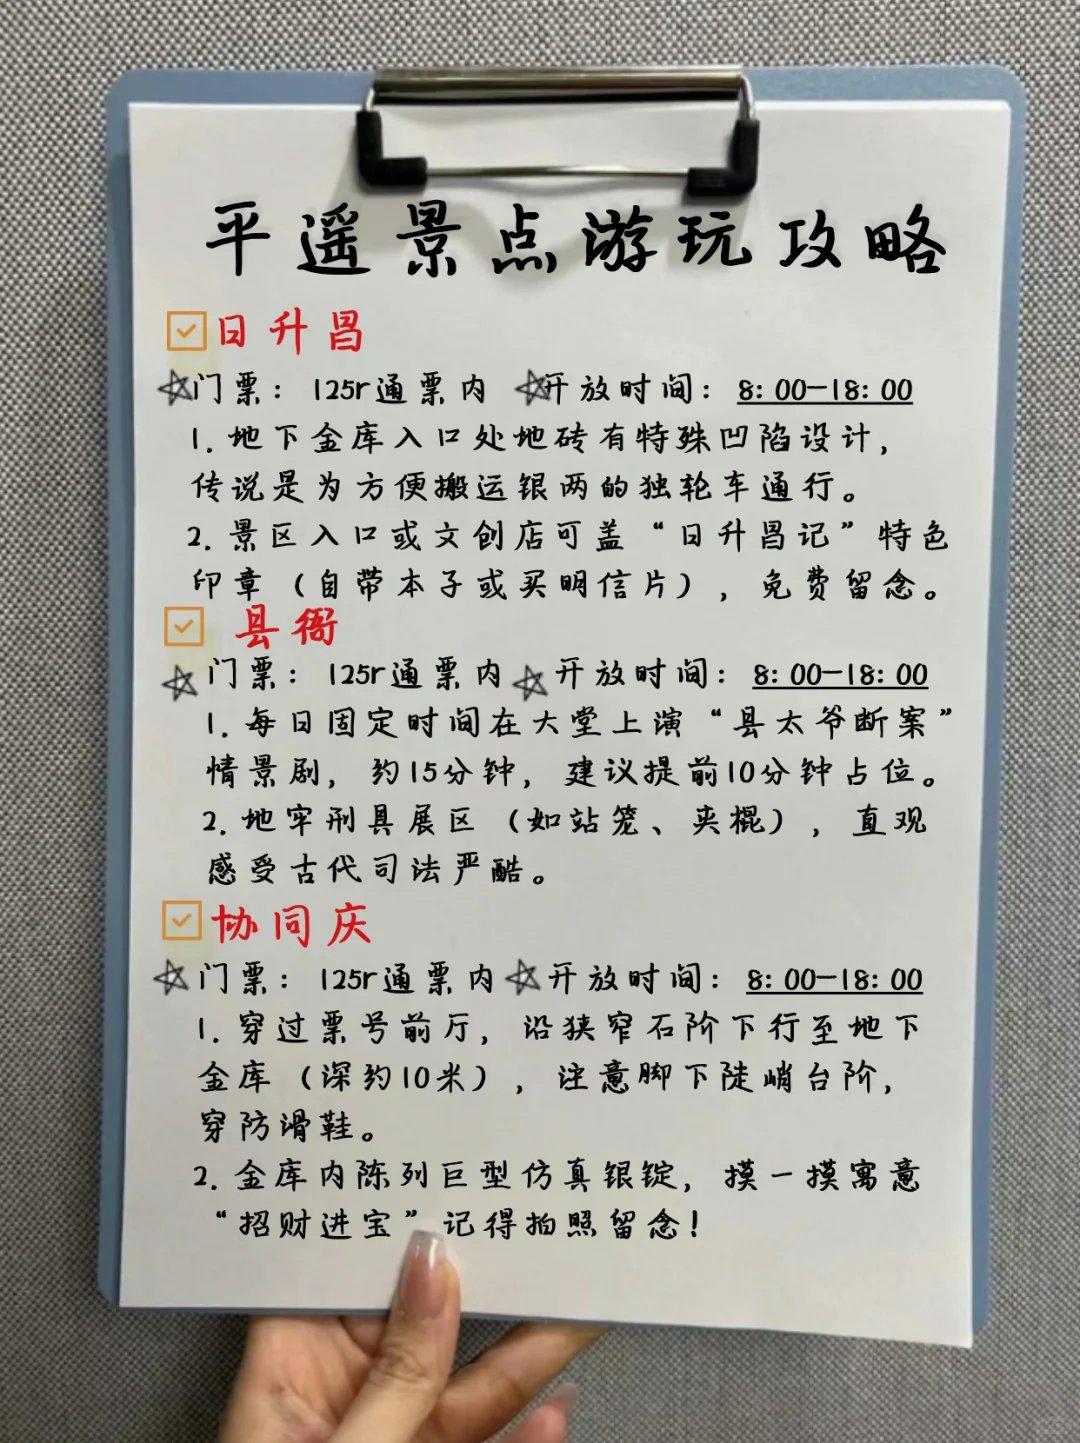 平遥景点游玩攻略
日升昌
门票：125r通票内 开放时间：8：00—18：00
1. 地下金库入口处地砖有特殊凹陷设计，
传说是为方便搬运银两的独轮车通行。
2. 景区入口或文创店可盖“日升昌记”特色
印章（自带本子或买明信片），免费留念。
县衙
门票：125r通票内 开放时间：8：00—18：00
1. 每日固定时间在大堂上演“县太爷断案”
情景剧，约15分钟，建议提前10分钟占位。
2. 地牢刑具展区（如站笼、夹棍），直观
感受古代司法严酷。
协同庆
门票：125r通票内 开放时间：8：00—18：00
1. 穿过票号前厅，沿狭窄石阶下行至地下
金库（深约10米），注意脚下陡峭台阶，
穿防滑鞋。
2. 金库内陈列巨型仿真银锭，摸一摸寓意
“招财进宝”记得拍照留念！